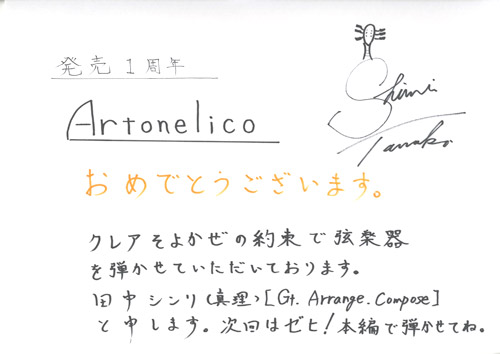 発売1周年
Artonelico
Shinri
Tanaka
おめでとうございます。
クレアそよかぜの約束で弦楽器
を弾かせていただいております。
田中シンリ(真理)[Gt. Arrange. Compose]
と申します。次回はゼヒ!本編で弾かせてね。